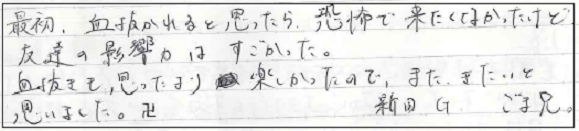 最初、血抜かれると思ったら、恐怖で来たくなかったけど
友達の影響力はすごかった。
血抜きも、思ったより楽しかったので、また、きたいと
思いました。卍 新田 G ごま兄。